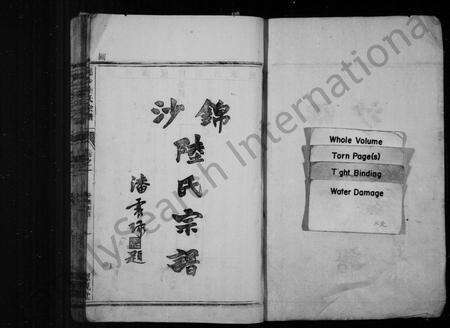 錦沙
陸氏宗譜
潘雲題
Whole Volume
Torn Page(s)
Tight Binding
Water Damage
FamilySearch International